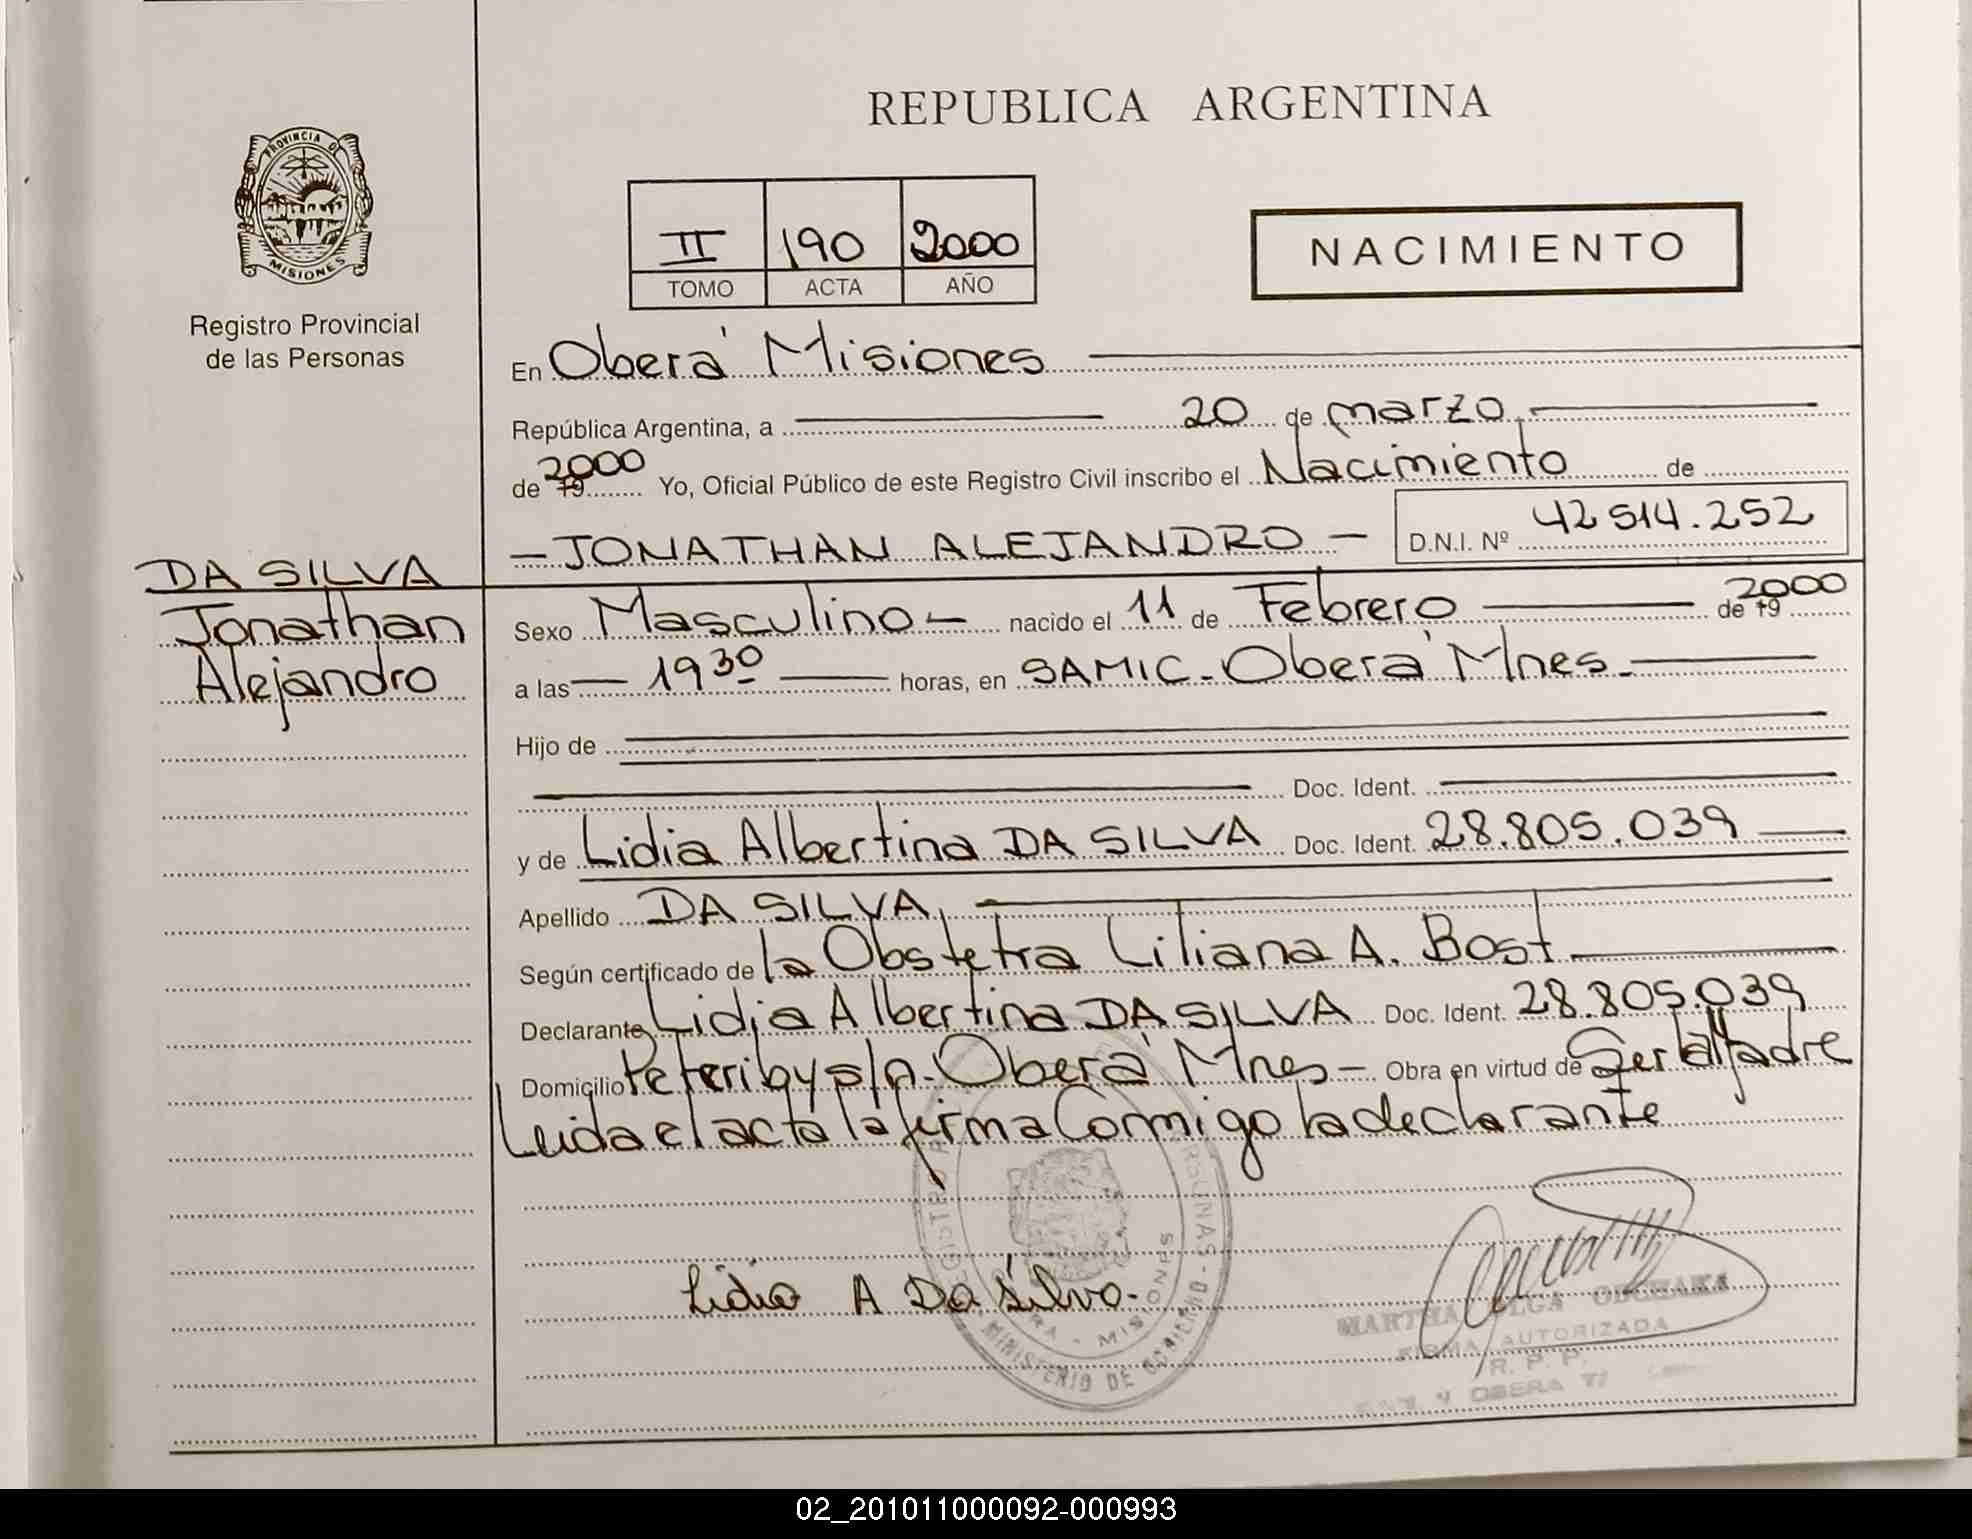 REPUBLICA ARGENTINA
PROVINCIA DE
MISIONES
Registro Provincial
de las Personas
II 190 2000
TOMO ACTA AÑO
NACIMIENTO
En Oberá Misiones
República Argentina, a 20 de marzo
de 19 2000 Yo, Oficial Público de este Registro Civil inscribo el Nacimiento de
- JONATHAN ALEJANDRO - D.N.I. Nº 42514.252
DA SILVA
Jonathan
Alejandro
Sexo Masculino - nacido el 11 de Febrero de 19 2000
a las 19 30 horas, en SAMIC - Oberá Mnes.
Hijo de
Doc. Ident.
y de Lidia Albertina DA SILVA Doc. Ident. 28.805.039
Apellido DA SILVA
Según certificado de la Obstetra Liliana A. Bost
Declarante Lidia Albertina DA SILVA Doc. Ident. 28.805.039
Domicilio s/n - Oberá Mnes - Obra en virtud de Ser
Leida el acta la firma Conmigo la declarante
Lidia A Da Silva.
MISIONES
MINISTERIO DE GOBIERNO
MARTHA OLGA
FIRMA AUTORIZADA
R. P. P.
OBERA
02_201011000092-000993